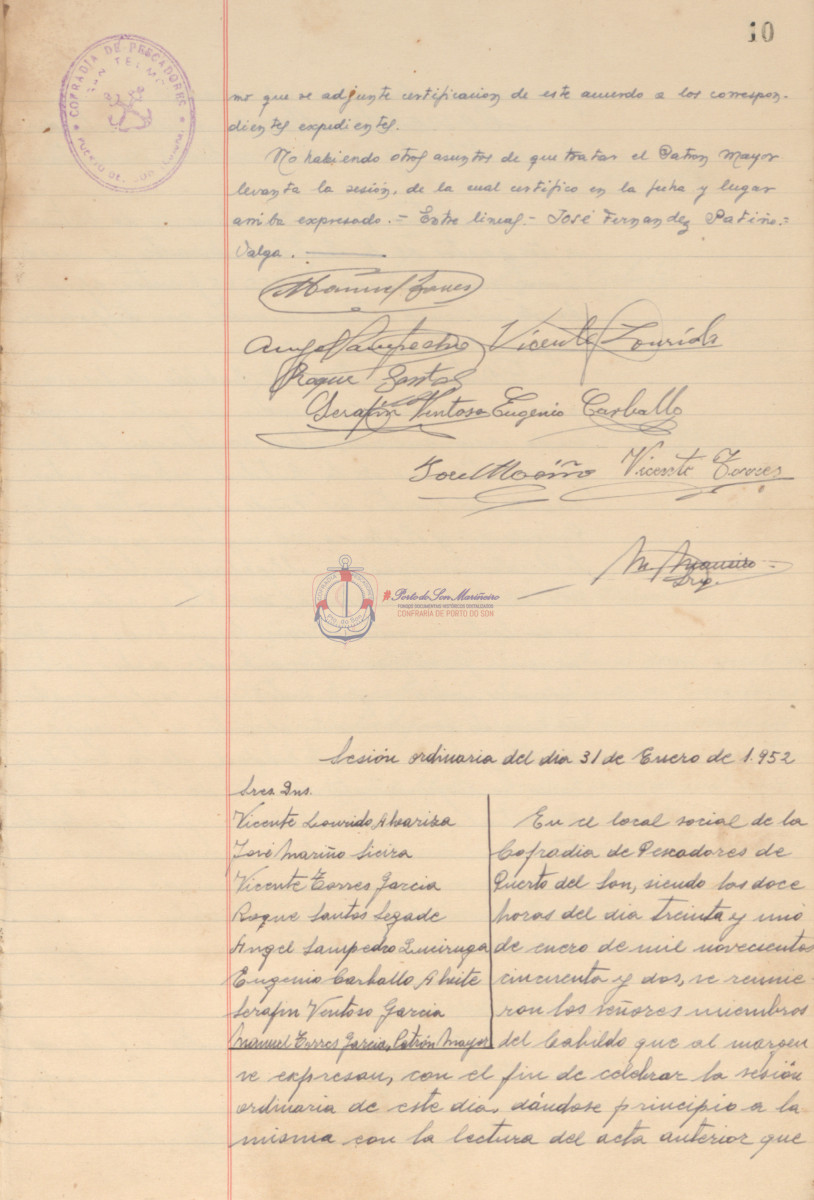 10
COFRADIA DE PESCADORES
SAN TELMO
PUERTO DEL SON
mo que se adjunte certificacion de este acuerdo a los correspon-
dientes expedientes.
No habiendo otros asuntos de que tratar el Patron Mayor
levanta la sesión, de la cual certifico en la fecha y lugar
arriba expresado.- Entre lineas.- José Fernandez Patiño.-
Valga.
Manuel Torres
Angel Sampedro Vicente Lourido
Roque Santos
Serafin Ventoso Eugenio Carballo
José Mariño Vicente Torres
Srio.
Porto do Son Mariñeiro
FONDOS DOCUMENTAIS HISTÓRICOS DIXITALIZADOS
CONFRARÍA DE PORTO DO SON
Sesión ordinaria del dia 31 de Enero de 1.952
Sres. Dns.
Vicente Lourido Alvariza
José Mariño Sieira
Vicente Torres Garcia
Roque Santos Segade
Angel Sampedro Queiruga
Eugenio Carballo Abeite
Serafin Ventoso Garcia
Manuel Torres Garcia, Patrón Mayor
En el local social de la
Cofradia de Pescadores de
Puerto del Son, siendo las doce
horas del dia treinta y uno
de enero de mil novecientos
cincuenta y dos, se reunie-
ron los señores miembros
del Cabildo que al margen
se expresan, con el fin de celebrar la sesión
ordinaria de este dia, dándose principio a la
misma con la lectura del acta anterior que